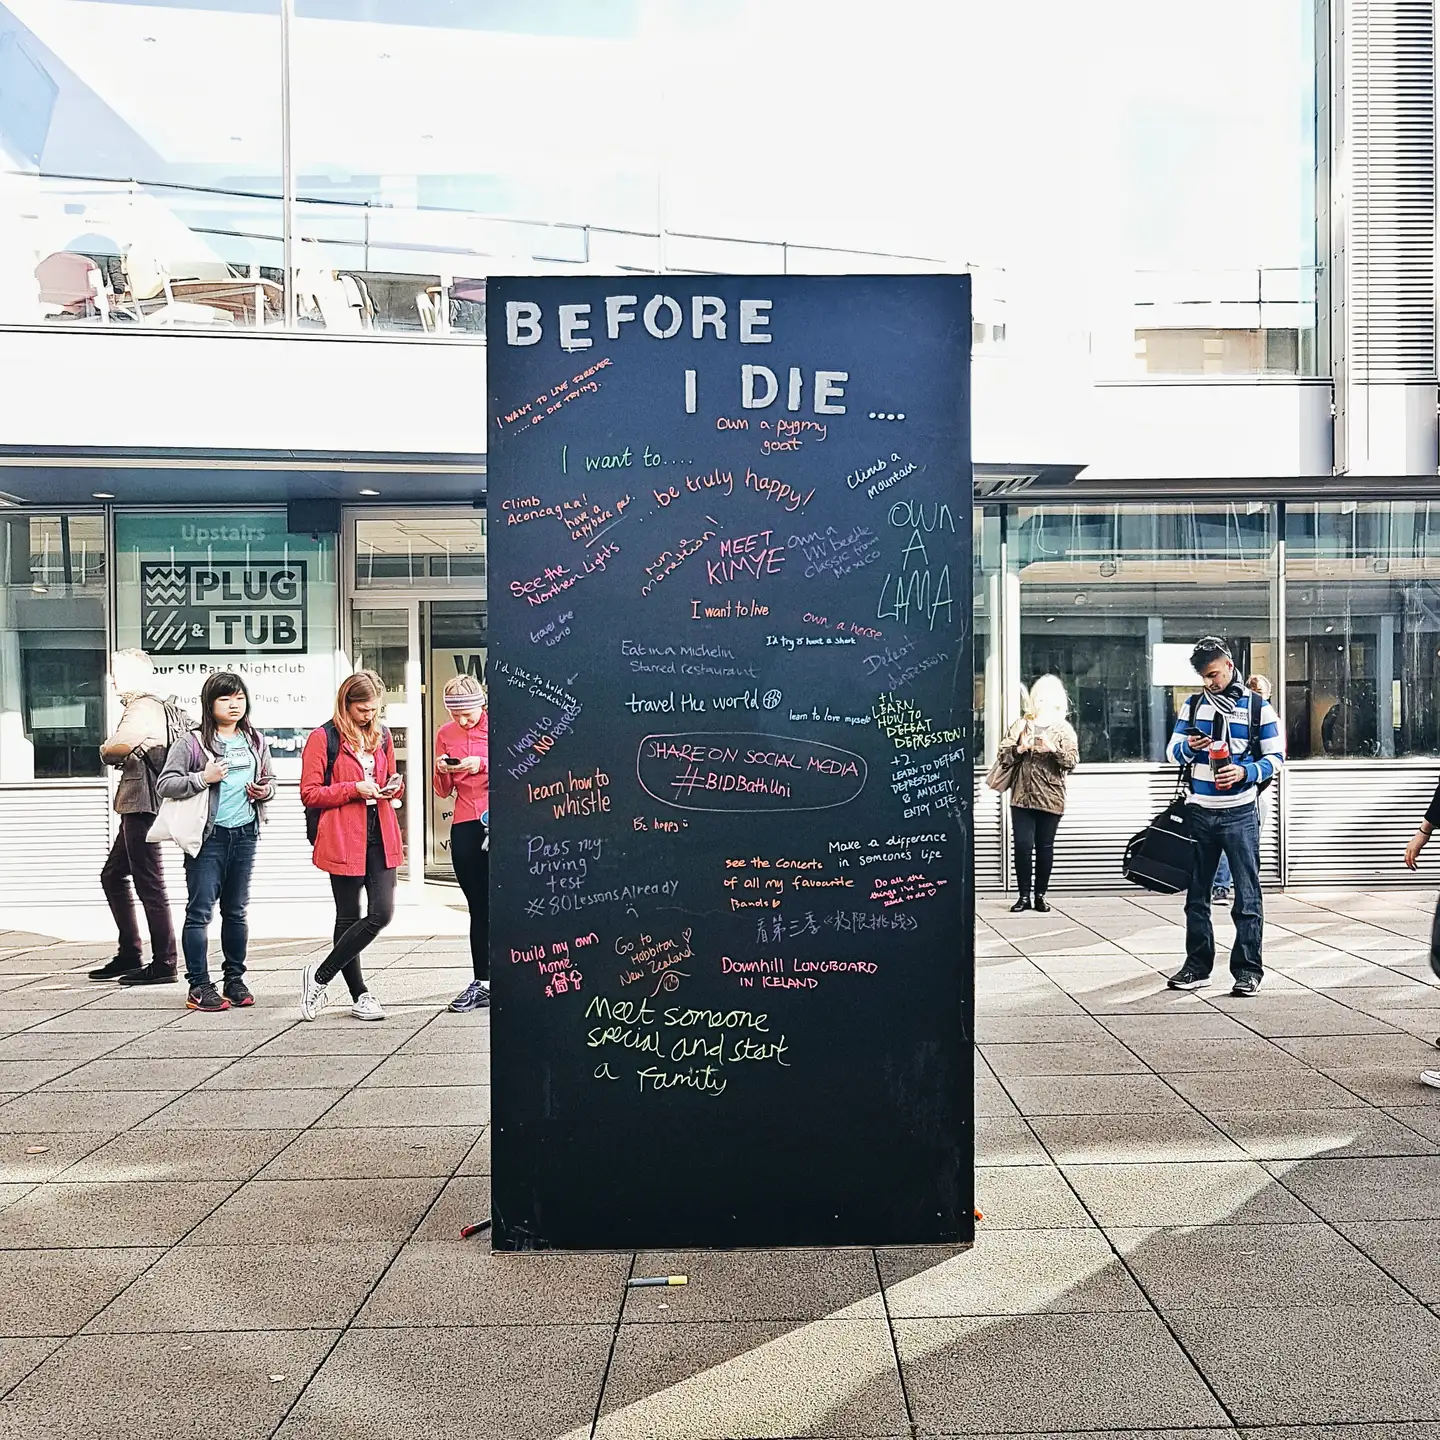 BEFORE
I DIE....
I WANT TO LIVE FOREVER
..... OR DIE TRYING.
own a pygmy
goat
I want to....
...be truly happy!
Climb a
Mountain
Climb
Aconcagua!
have a
capybara pet.
OWN
A
LAMA
See the
Northern Lights
run a
marathon
MEET
KIMYE
Own a
VW beetle
classic from
Mexico
travel the
world
I want to live
own a horse.
I'd try & hunt a shark
Eat in a Michelin
Starred restaurant
Defeat
depression
I'd like to hold my
first Grandchild
travel the world
learn to love myself
+1
LEARN
HOW TO
DEFEAT
DEPRESSION!
I want to
have NO regrets
SHARE ON SOCIAL MEDIA
#BIDBathUni
+2
LEARN TO DEFEAT
DEPRESSION
& ANXIETY,
ENJOY LIFE
+3
learn how to
whistle
Be happy
Pass my
driving
test
#80LessonsAlready
Make a difference
in someone's life
see the concerts
of all my favourite
Bands
Do all the
things I've been too
scared to do
看第三季《极限挑战》
build my own
home.
Go to
Hobbiton
New Zealand
Downhill LONGBOARD
IN ICELAND
Meet someone
special and start
a family
Upstairs
PLUG
& TUB
our SU Bar & Nightclub
Plug Tub